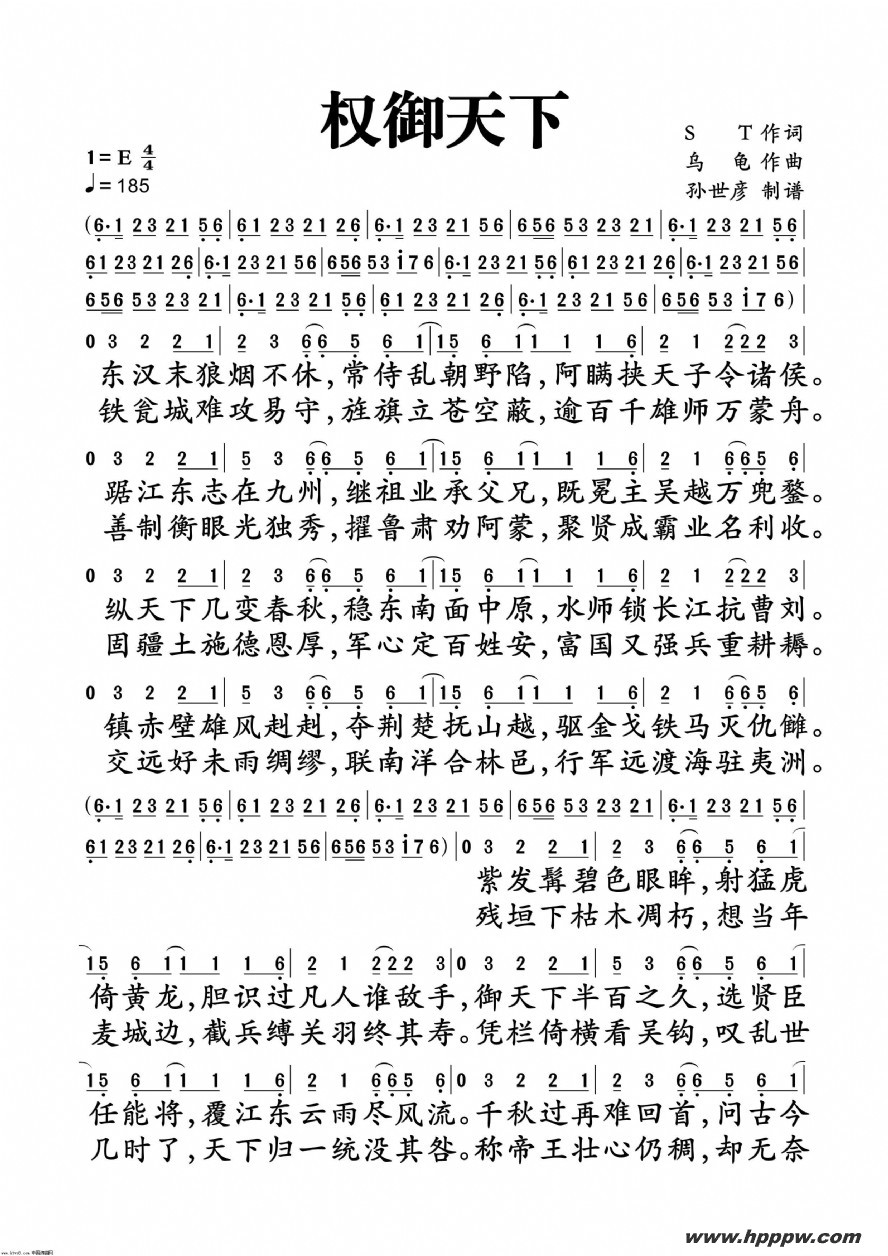 权御天下
S T作词
1=E 4/4
乌 龟 作曲
♩=185
孙世彦 制谱
(6·1 23 21 56|61 23 21 26|6·1 23 21 56|656 53 23 21|6·1 23 21 56|
61 23 21 26|6·1 23 21 56|656 53 i7 6|6·1 23 21 56|61 23 21 26|6·1 23 21 56|
656 53 23 21|6·1 23 21 56|61 23 21 26|6·1 23 21 56|656 53 i7 6)|
0 3 2 2 1|2 3 66 5 6 1|15 6 11 1 1 6|2 1 222 3|
东汉末狼烟不休,常侍乱朝野陷,阿瞒挟天子令诸侯。
铁瓮城难攻易守,旌旗立苍空蔽,逾百千雄师万蒙舟。
0 3 2 2 1|5 3 66 5 6 1|15 6 11 1 1 6|2 1 6656|
踞江东志在九州,继祖业承父兄,既冕主吴越万兜鍪。
善制衡眼光独秀,擢鲁肃劝阿蒙,聚贤成霸业名利收。
0 3 2 2 1|2 3 66 5 6 1|15 6 11 1 1 6|2 1 222 3|
纵天下几变春秋,稳东南面中原,水师锁长江抗曹刘。
固疆土施德恩厚,军心定百姓安,富国又强兵重耕耨。
0 3 2 2 1|5 3 66 5 6 1|15 6 11 1 1 6|2 1 665 6|
镇赤壁雄风赳赳,夺荆楚抚山越,驱金戈铁马灭仇雠。
交远好未雨绸缪,联南洋合林邑,行军远渡海驻夷洲。
(6·1 23 21 56|61 23 21 26|6·1 23 21 56|656 53 23 21|6·1 23 21 56|
61 23 21 26|6·1 23 21 56|656 53 i7 6)|0 3 2 2 1|2 3 66 5 6 1|
紫发髯碧色眼眸,射猛虎
残垣下枯木凋朽,想当年
15 6 11 1 1 6|2 1 222 3|0 3 2 2 1|5 3 66 5 6 1|
倚黄龙,胆识过凡人谁敌手,御天下半百之久,选贤臣
麦城边,截兵缚关羽终其寿。凭栏倚横看吴钩,叹乱世
15 6 11 1 1 6|2 1 665 6|0 3 2 2 1|2 3 66 5 6 1|
任能将,覆江东云雨尽风流。千秋过再难回首,问古今
几时了,天下归一统没其咎。称帝王壮心仍稠,却无奈
www.hpppw.com